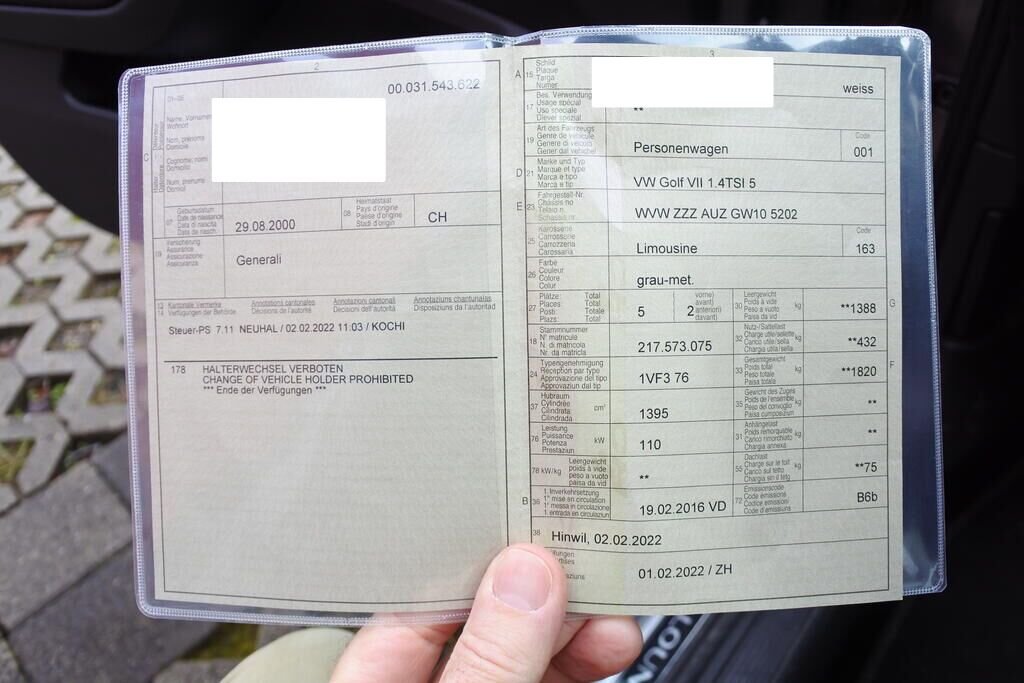 2
00.031.543.622
01-06
Name, Vornamen
Wohnort
Nom, prénoms
Domicile
Cognome, nomi
Domicilio
Num, prenums
Domicil
C
07
Geburtsdatum
Date de naissance
Data di nascita
Data da nasch.
29.08.2000
08
Heimatstaat
Pays d'origine
Paese d'origine
Stadi d'origin
CH
09
Versicherung
Assurance
Assicurazione
Assicuranza
Generali
13
14
Kantonale Vermerke
Verfügungen der Behörde
Annotations cantonales
Décisions de l'autorité
Annotazioni cantonali
Decisioni dell'autorità
Annotaziuns chantunalas
Disposiziuns da l'autoritad
Steuer-PS 7.11 NEUHAL / 02.02.2022 11:03 / KOCHI
178 HALTERWECHSEL VERBOTEN
CHANGE OF VEHICLE HOLDER PROHIBITED
*** Ende der Verfügungen ***
3
A 15
Schild
Plaque
Targa
Numer
weiss
17
Bes. Verwendung
Usage spécial
Uso speciale
Diever spezial
**
19
Art des Fahrzeugs
Genre de véhicule
Genere di veicolo
Gener dal vehichel
Personenwagen
Code
001
D 21
Marke und Typ
Marque et type
Marca e tipo
Marca e tip
VW Golf VII 1.4TSI 5
E 23
Fahrgestell-Nr.
Châssis no
Telaio n.
Schassis nr.
WVW ZZZ AUZ GW10 5202
25
Karosserie
Carrosserie
Carrozzeria
Carossaria
Limousine
Code
163
26
Farbe
Couleur
Colore
Colur
grau-met.
27
Plätze: Total
Places: Total
Posti: Totale
Plazs: Total
5
2
vorne)
avant)
anteriori)
davant)
30
Leergewicht
Poids à vide
Peso a vuoto
Paisa da vid
kg
**1388
G
18
Stammnummer
N° matricule
N. di matricola
Nr. da matricla
217.573.075
32
Nutz-/Sattellast
Charge utile/sellette
Carico utile/sella
Chargia utila/sella
kg
**432
24
Typengenehmigung
Réception par type
Approvazione del tipo
Approvaziun dal tip
1VF3 76
33
Gesamtgewicht
Poids total
Peso totale
Paisa totala
kg
**1820
F
37
Hubraum
Cylindrée
Cilindrata
Cilindrada
cm³
1395
35
Gewicht des Zuges
Poids de l'ensemble
Peso del convoglio
Paisa cumposiziun
kg
**
76
Leistung
Puissance
Potenza
Prestaziun
kW
110
31
Anhängelast
Poids remorquable
Carico rimorchiato
Chargia annexa
kg
**
78 kW/kg
Leergewicht
poids à vide
peso a vuoto
paisa da vid
**
55
Dachlast
Charge sur le toit
Carico sul tetto
Chargia sin il tetg
kg
**75
B 36
1. Inverkehrsetzung
1re mise en circulation
1a messa in circolazione
1. entrada en circulaziun
19.02.2016 VD
72
Emissionscode
Code émissions
Codice emissioni
Code d'emissiuns
B6b
38
Hinwil, 02.02.2022
01.02.2022 / ZH